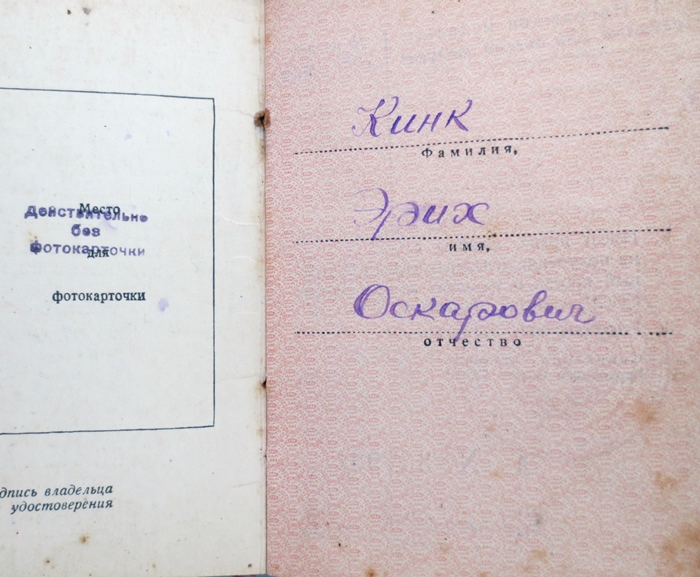 Место
Действительно
без
Фотокарточки
для
фотокарточки
дпись владельца
удостоверения
Кинк
Фамилия,
Эрих
имя,
Оскарович
отчество